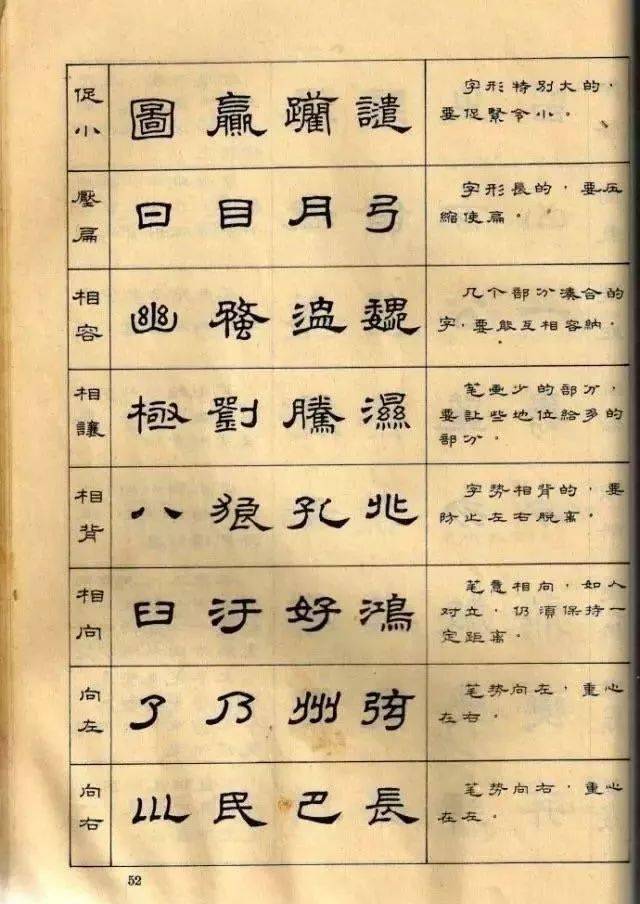 促小
圖 贏 譴
字形特别大的,
要促緊令小。
壓扁
曰 目 月 弓
字形長的,要压
縮使扁。
相容
幽 魏
几个部分湊合的
字,要能互相容納。
相讓
極 劉 騰 濕
笔画少的部分,
要让些地位給多的
部分。
相背
八 狼 孔
字势相背的,要
防止左右脱离。
相向
臼 汙 好 鴻
笔意相向,如人
对立,仍須保持一
定距离。
向左
了 乃 州
笔势向左,重心
在右。
向右
民 巴 長
笔势向右,重心
在左。
52